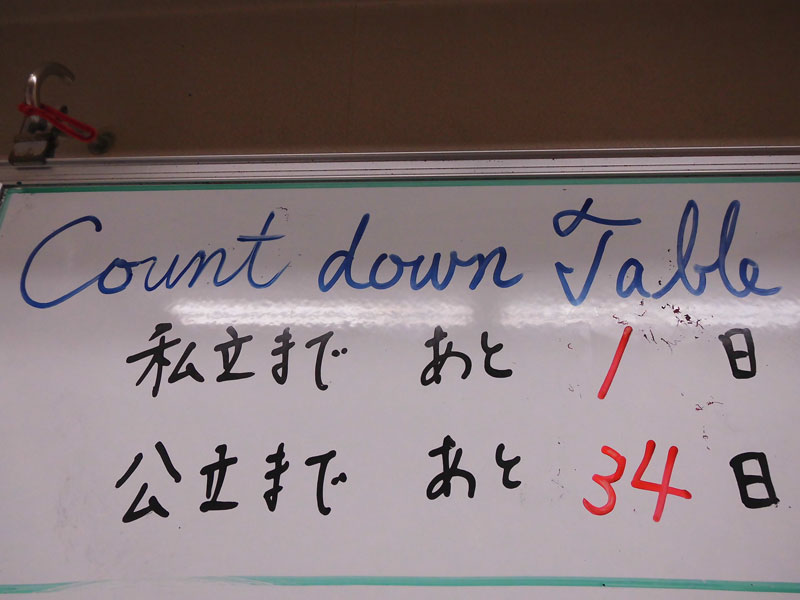 Count down Table
私立まで あと 1 日
公立まで あと 34 日